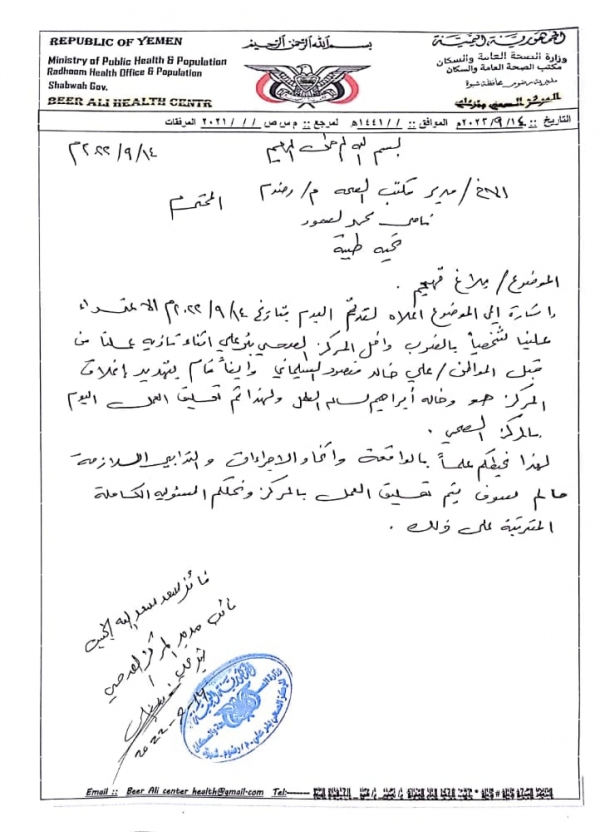 REPUBLIC OF YEMEN
Ministry of Public Health & Population
Radhoom Health Office & Population
Shabwah Gov.
BEER ALI HEALTH CENTR
بسم الله الرحمن الرحيم
الجمهورية اليمنية
وزارة الصحة العامة والسكان
مكتب الصحة العامة والسكان
مديرية رضوم محافظة شبوة
التاريخ :: ١٤/ ٩/ ٢٠٢٢م الموافق :: / / ١٤٤١هـ المرجع :: م س ص / / / ٢٠٢١ المرفقات
بسم الله الرحمن الرحيم
٢٠٢٢/٩/١٤م
الاخ / مدير مكتب الصحة م/ رضوم المحترم
تحية طيبة
الموضوع / بلاغ تهجم .
واشارة إلى الموضوع اعلاه لقد تم اليوم بتاريخ ٢٠٢٢/٩/١٤م الاعتداء
علينا شخصياً بالضرب داخل المركز الصحي بئر علي اثناء تأدية عملنا من
قبل المواطن / علي خالد منصور السليماني وايضاً قام بتهديد إغلاق
المركز هو وخاله أبراهيم سالم ولهذا تم تعليق العمل اليوم
بالمركز الصحي .
لهذا نحيطكم علماً بالواقعة واتخاذ الاجراءات والتدابير اللازمة
مالم سوف يتم تعليق العمل بالمركز ونحملكم المسئولية الكاملة
المترتبة على ذلك .
نائب مدير المركز الصحي
بئر علي
2022-9-14
الجمهورية اليمنية
Email :: Beer Ali center health@gmail.com Tel:------